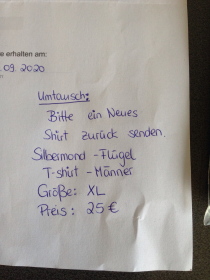 e erhalten am:
.09.2020
Umtausch:
Bitte ein Neues
Shirt zurück senden.
Silbermond - Flügel
T-shirt - Männer
Größe: XL
Preis: 25€